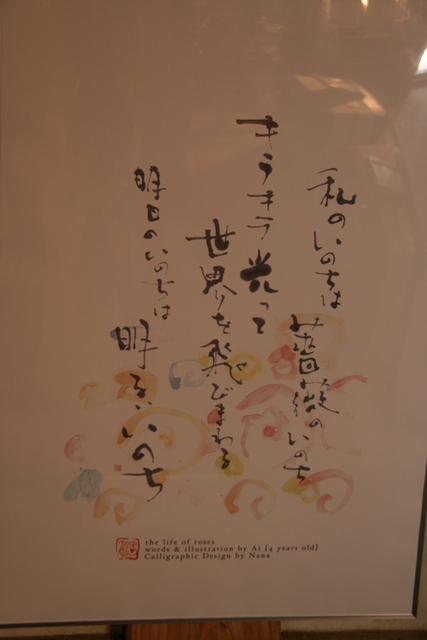 私のいのちは
薔薇のいのち
キラキラ光って
世界を飛びまわる
明日のいのちは
明るいいのち
the life of roses
words & illustration by Ai [4 years old]
Calligraphic Design by Nana